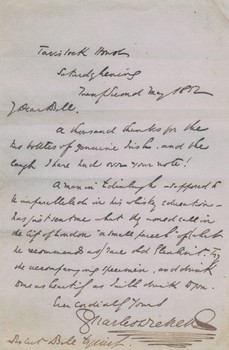 Tavistock House
Saturday Evening
Twenty Second May 1852
My Dear Bell.
A thousand thanks for the
two bottles of genuine Irish. and the
laugh I have had over your note!
A man in Edinburgh supposed to
be unparalleled in his whisky education
has just sent me what they would call in
the City of London "a small parcel" of what
he recommends as rare old Glenlivit. Try
the accompanying specimen, and drink
one as heartily as I will drink to you.
Ever Cordially Yours
Charles Dickens
Robert Bell Esquire